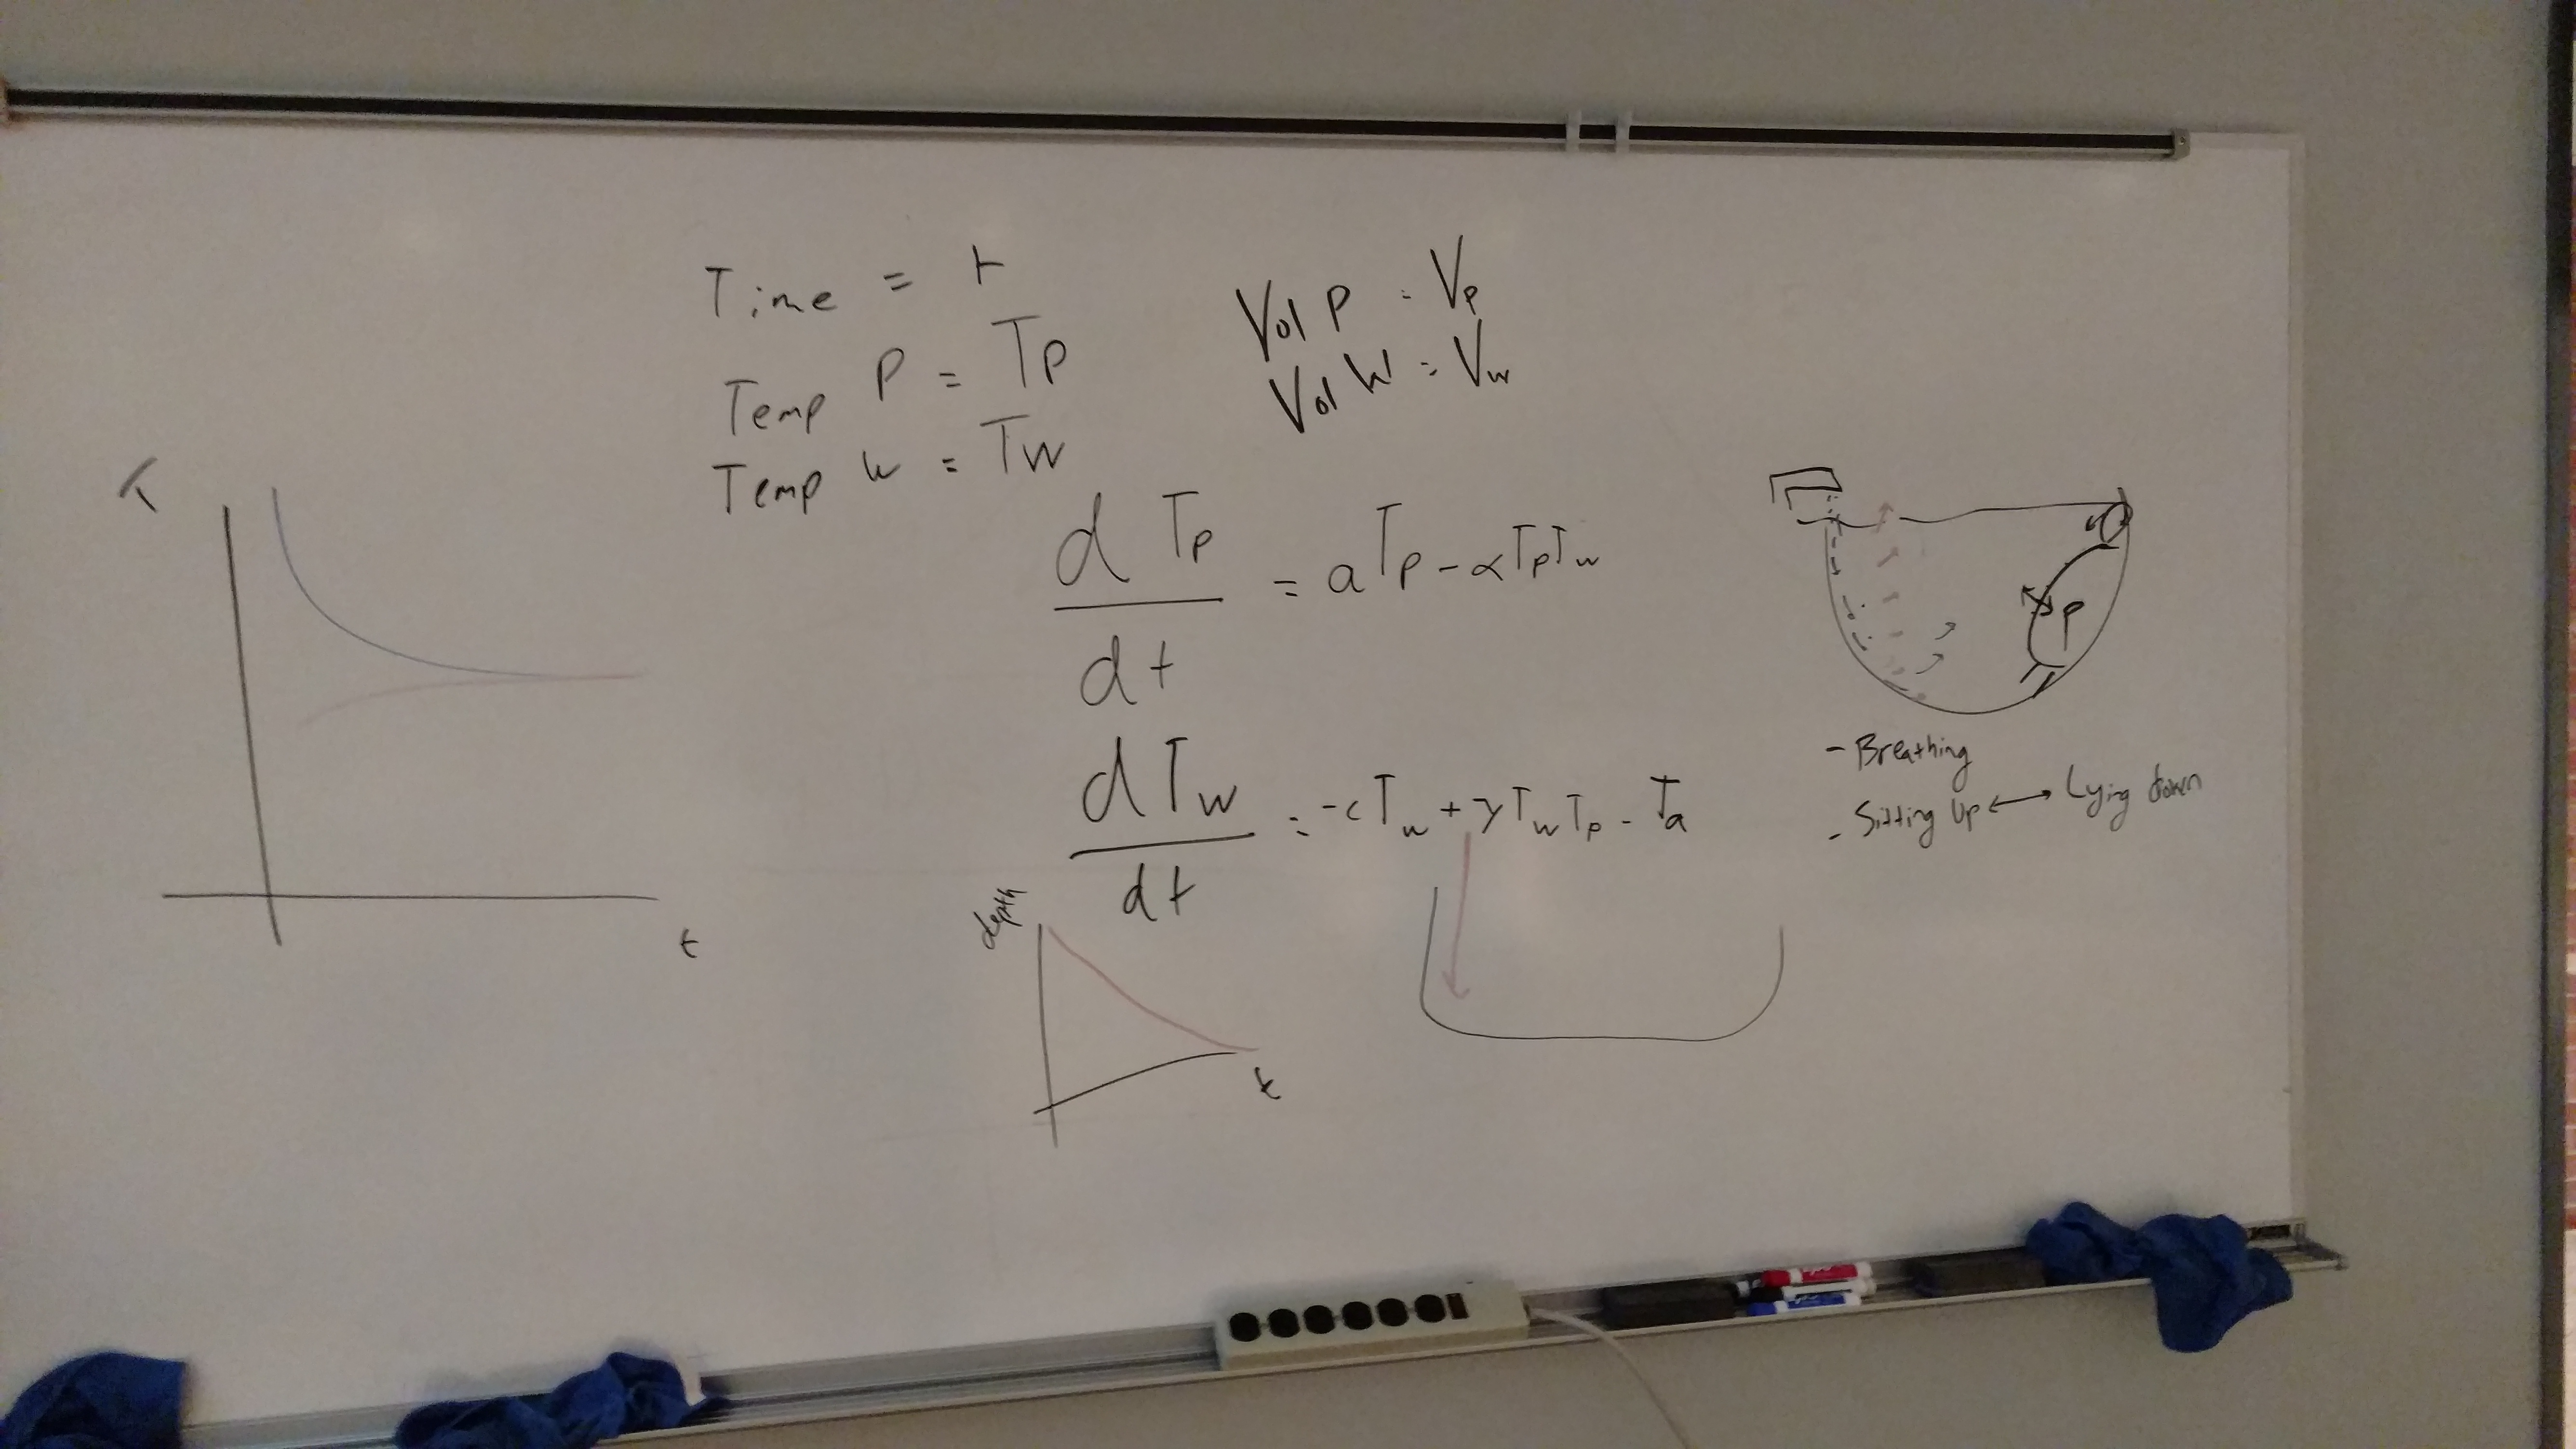 Time = t
Temp P = Tp
Temp W = Tw
Vol P = Vp
Vol W = Vw
T
t
dTp/dt = aTp - αTpTw
dTw/dt = -cTw + γTwTp - Ta
P
- Breathing
- Sitting Up ↔ Lying down
depth
t